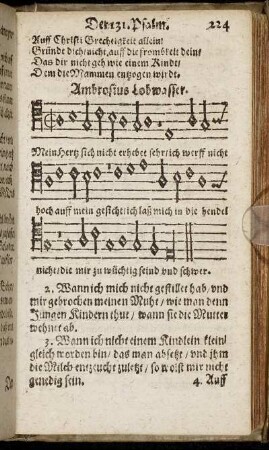 Der 131. Psalm. 224
Auff Christi Grechtigkeit allein/
Gründe dich nicht auff die frombkeit dein/
Das dir nicht geh wie einem Kinde/
Dem die Mammen entzogen wirdt.
Ambrosius Lobwasser.
Mein Hertz sich nicht erhebet sehr/ ich werff nicht
hoch auff mein gesicht/ ich laß mich in die hendel
nicht/ die mir zu wüchtig seind vnd schwer.
2. Wann ich mich nicht gestillet hab/ vnd
mir gebrochen meinen Muht/ wie man den
Jungen Kindern thut/ wann sie die Mutter
wehnet ab.
3. Wann ich nicht einem Kindlein klein/
gleich worden bin/ das man absetzt/ vnd jhm
die Milch entzeucht zuletzt/ so wolst mir nicht
genedig sein. 4. Auff